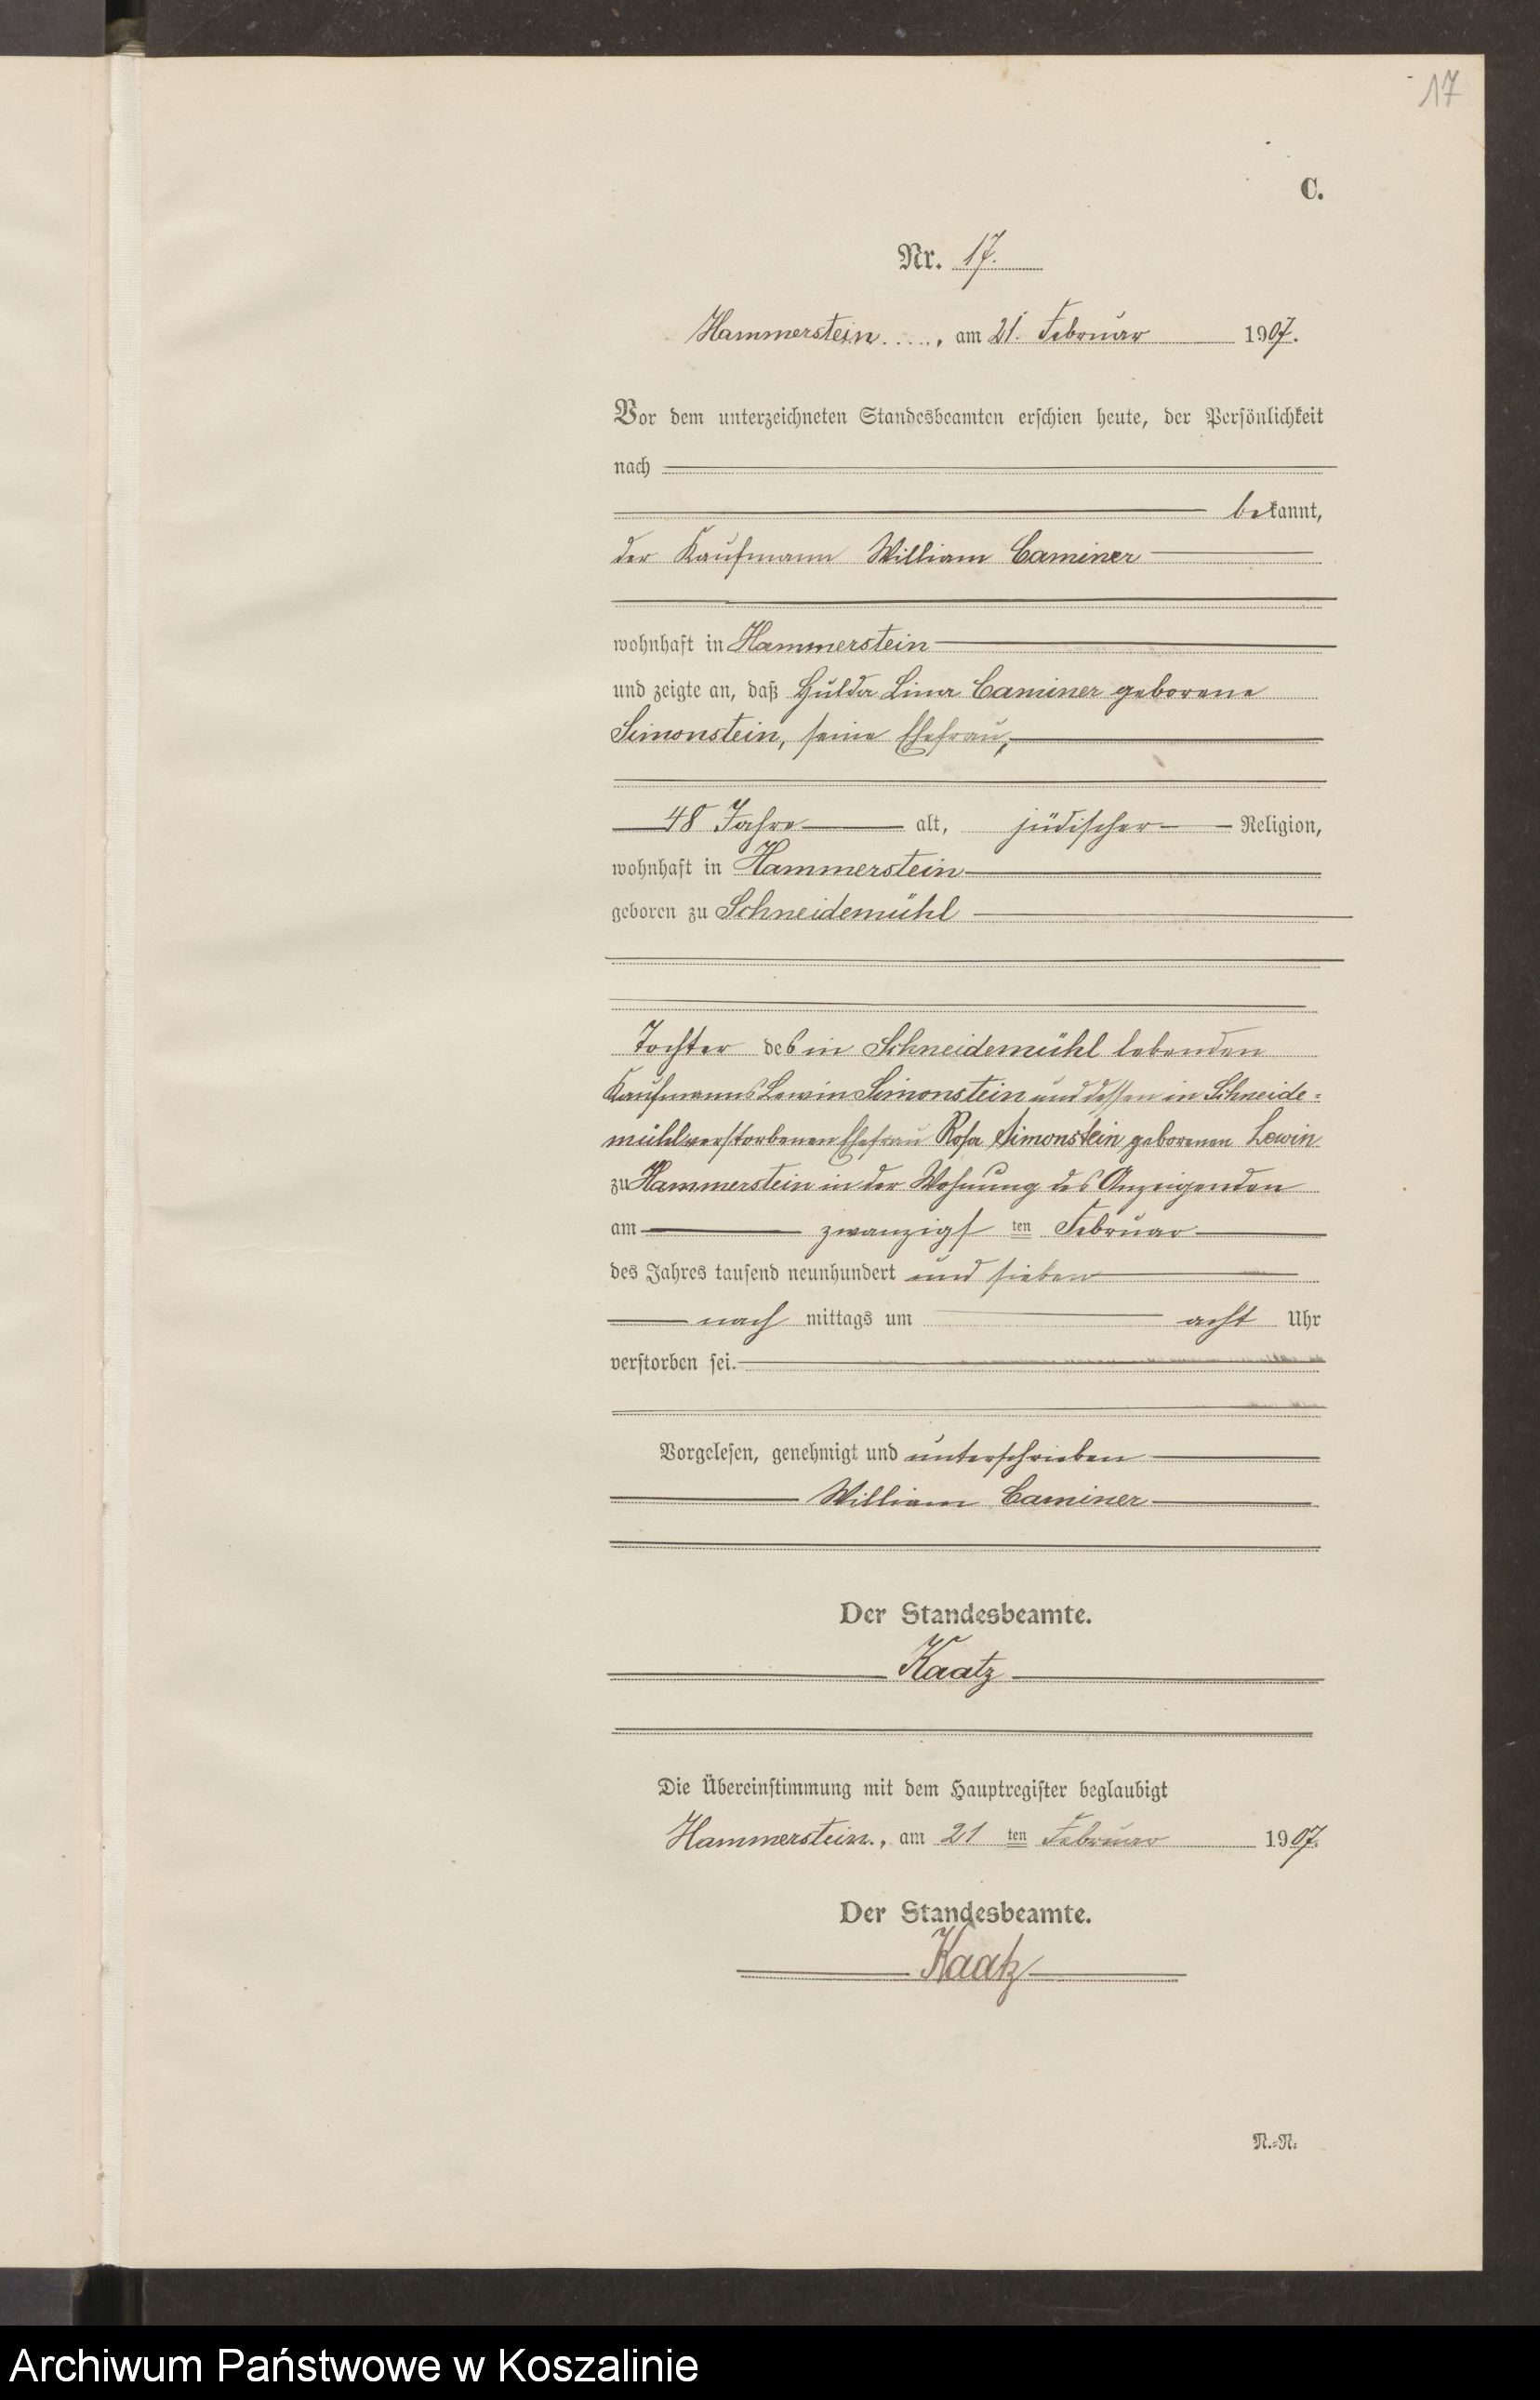 17
C.
Nr. 17.
Hammerstein ....., am 21. Februar 1907.
Vor dem unterzeichneten Standesbeamten erschien heute, der Persönlichkeit
nach
bekannt,
der Kaufmann William Caminer
wohnhaft in Hammerstein
und zeigte an, daß Hulda Lina Caminer geborene
Simonstein, seine Ehefrau,
48 Jahre alt, jüdischer Religion,
wohnhaft in Hammerstein
geboren zu Schneidemühl
Tochter des in Schneidemühl lebenden
Kaufmanns Lewin Simonstein und dessen in Schneide=
mühl verstorbenen Ehefrau Rosa Simonstein geborenen Lewin
zu Hammerstein in der Wohnung des Anzeigenden
am zwanzigsten Februar
des Jahres tausend neunhundert und sieben
nach mittags um acht Uhr
verstorben sei.
Vorgelesen, genehmigt und unterschrieben
William Caminer
Der Standesbeamte.
Kaatz
Die Übereinstimmung mit dem Hauptregister beglaubigt
Hammerstein., am 21 ten Februar 1907.
Der Standesbeamte.
Kaatz
N.=N.
Archiwum Państwowe w Koszalinie